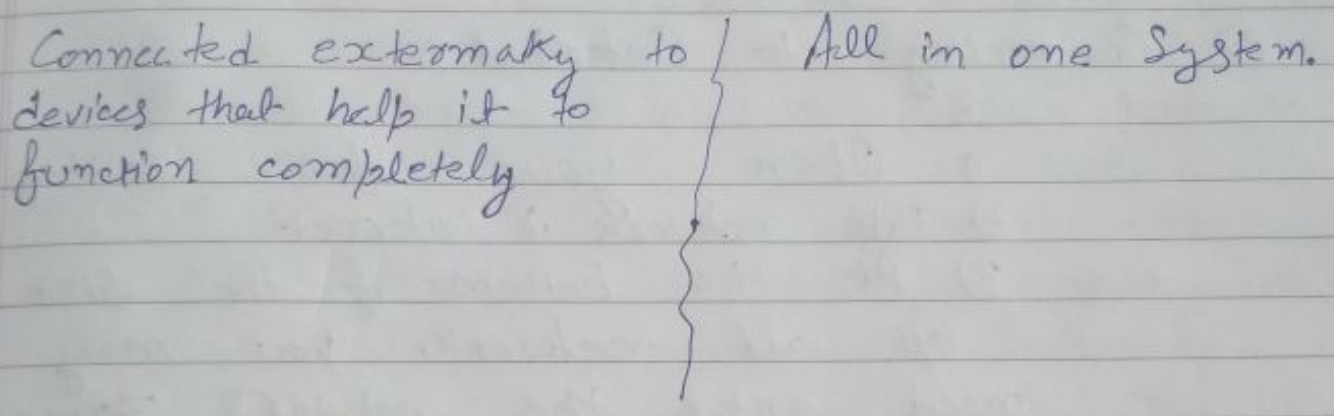 Connected extermaky to
devices that help it to
function completely
All in one System.